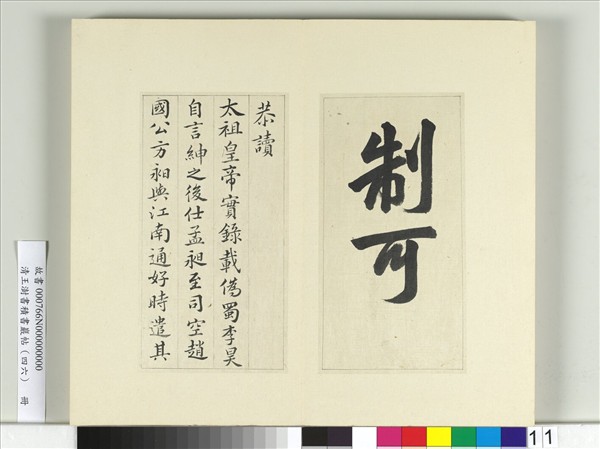 制可
恭讀
太祖皇帝實錄載偽蜀李昊
自言紳之後仕孟昶至司空趙
國公方昶與江南通好時遣其
故書000766N000000000
清王澍書積書巖帖（四六） 冊
11